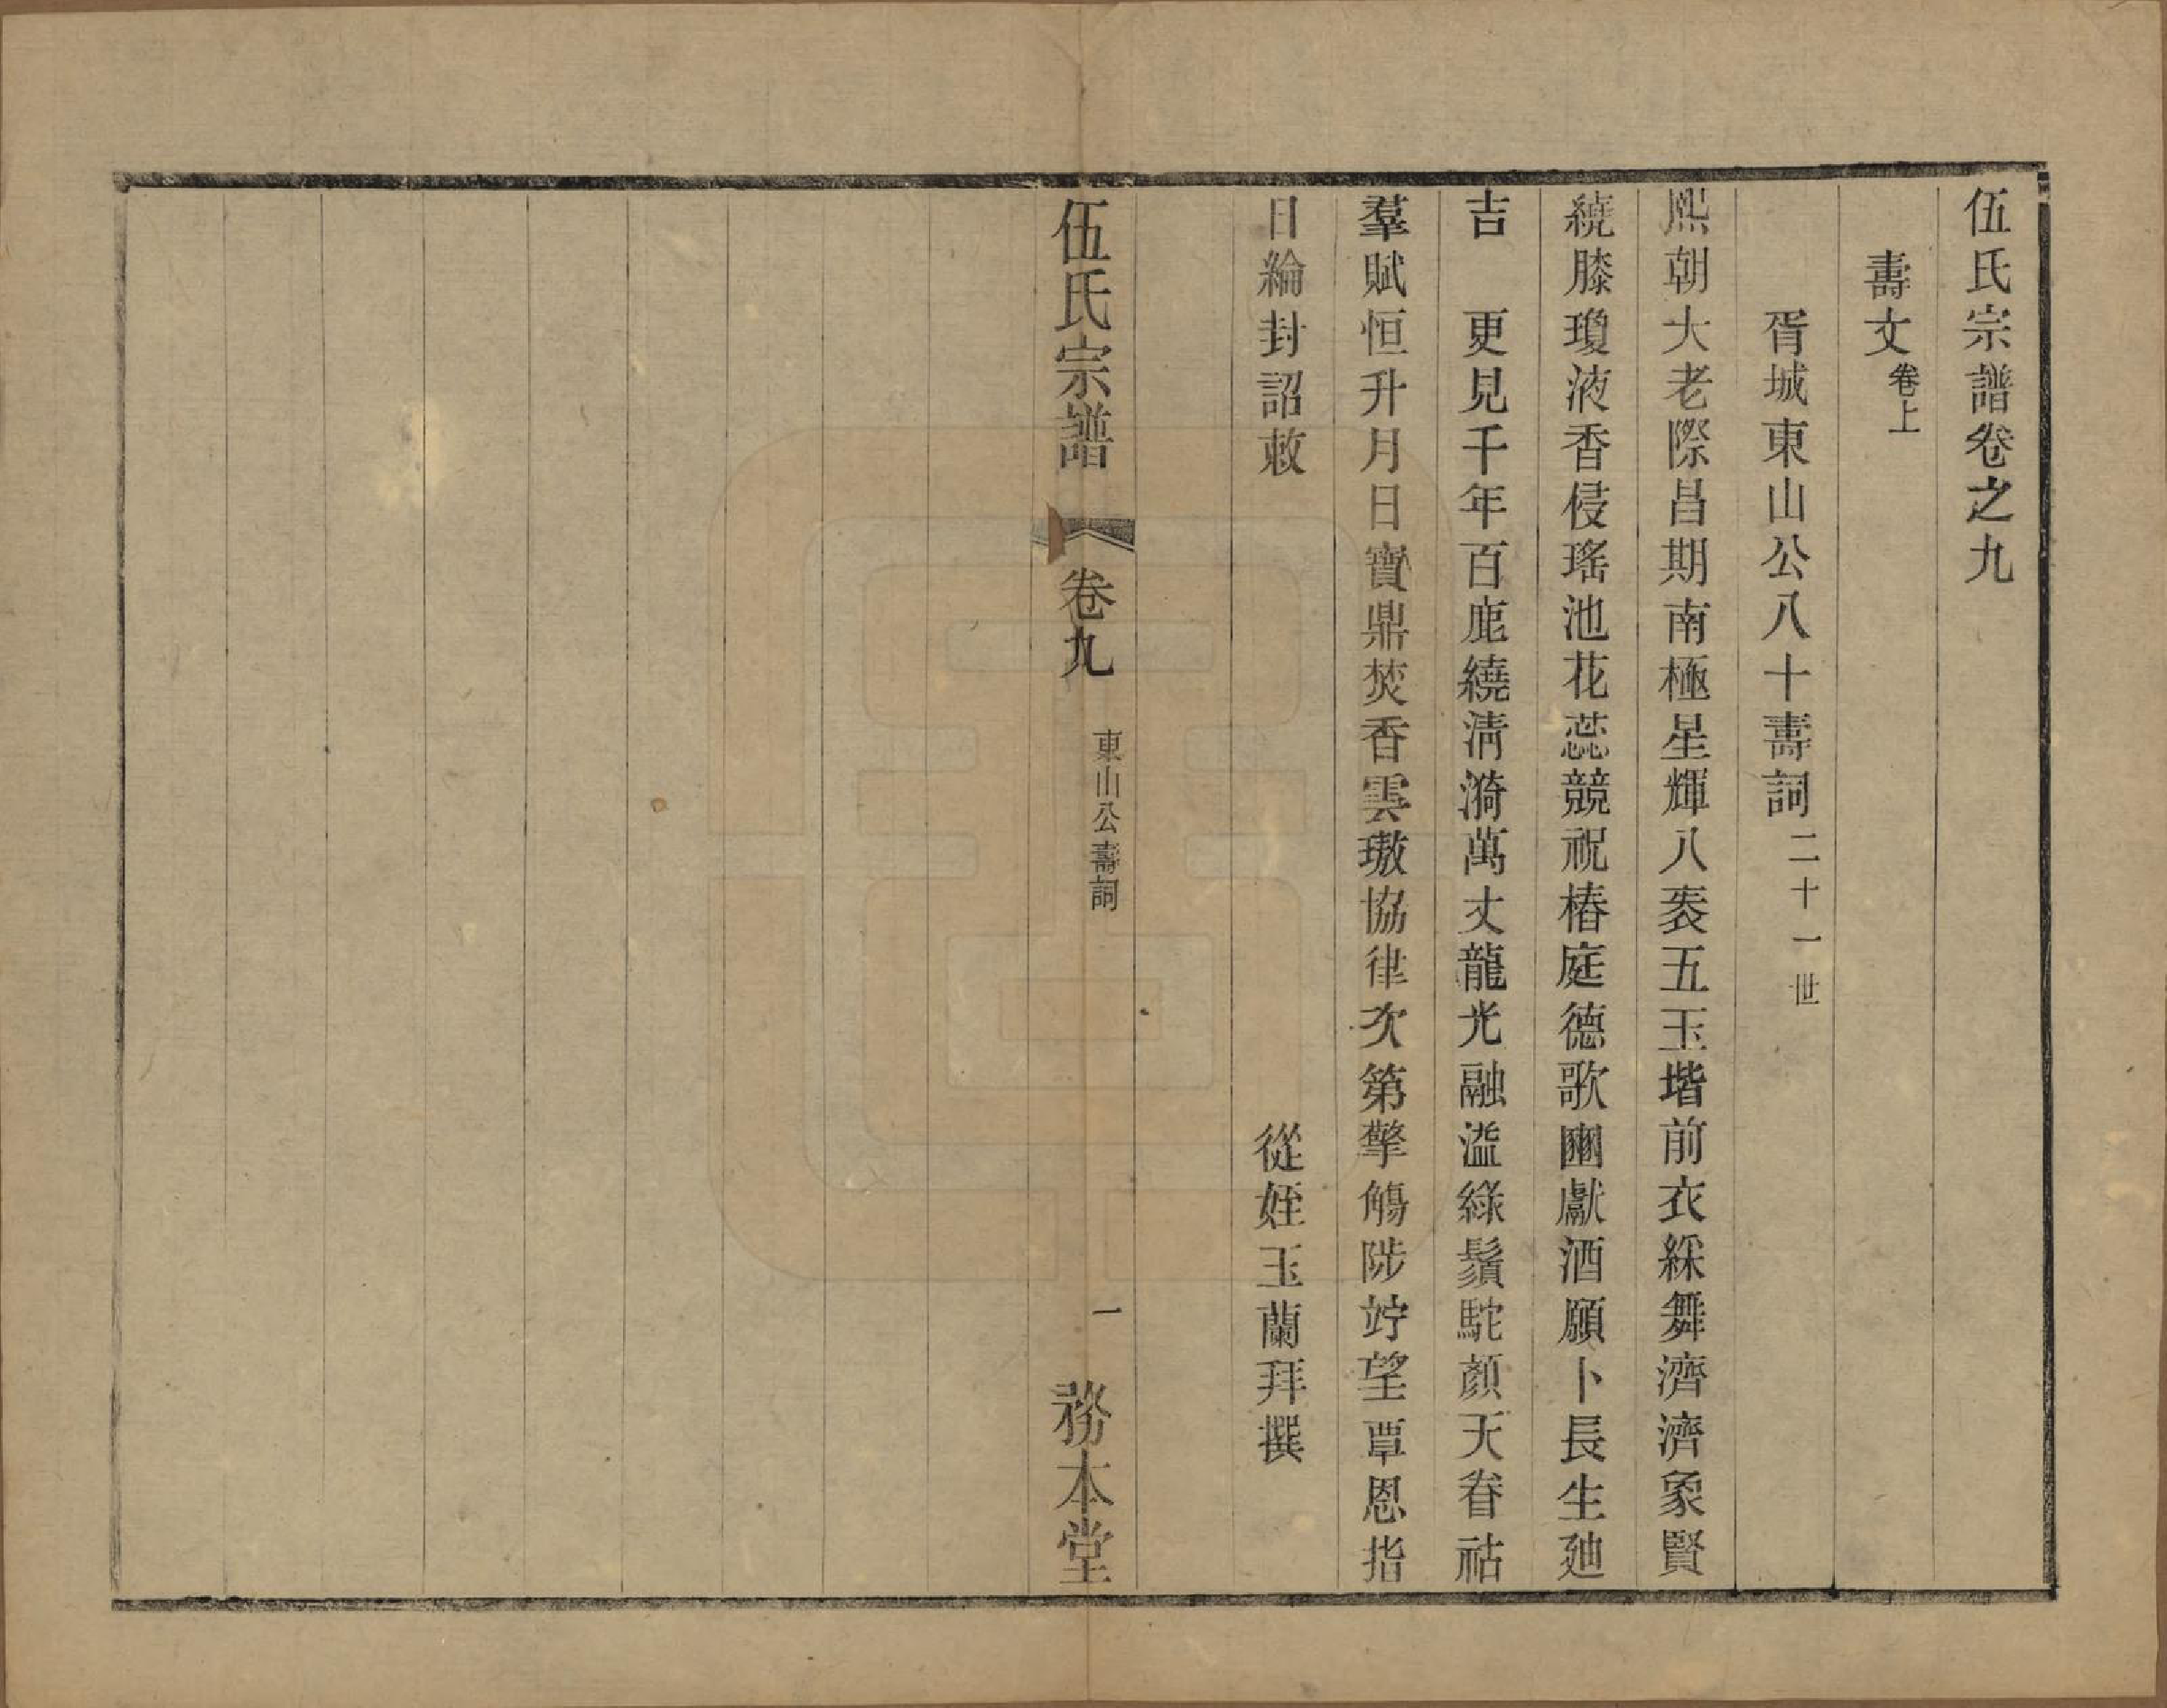 伍氏宗譜卷之九
壽文卷上
胥城東山公八十壽詞二十一世
熙朝大老際昌期南極星輝八袠五玉堦前衣綵舞濟濟象賢
繞膝瓊液香侵瑤池花蕊競祝椿庭德歌豳獻酒願卜長生廸
吉　更見千年百鹿繞淸漪萬丈龍光融溢綠鬚駝顏天眷祜
羣賦恒升月日寶鼎焚香雲璈協律次第擎觴陟竚望覃恩指
日綸封詔敕　從姪玉蘭拜撰
伍氏宗譜　卷九　東山公壽詞　一　務本堂